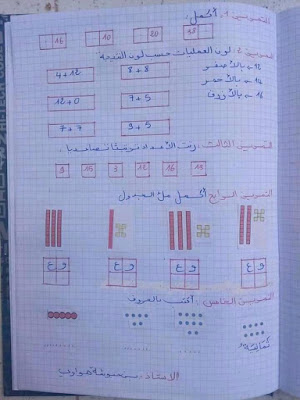 التمرين 1: أكمل:
16 10 20 18
التمرين 2: لون العمليات حسب لون النتيجة
12 ← بالأصفر
بالأحمر
16 ← بالأزرق
8 + 8
4 + 12
7 + 5
12 + 0
9 + 5
7 + 7
التمرين الثالث: رتب الأعداد ترتيبا تصاعديا:
9 15 3 12 16 19
التمرين الرابع: أكمل ملأ الجدول
و ع
و ع
و ع
و ع
التمرين الخامس: أكتب بالحروف
ثمانية
الأستاذ: